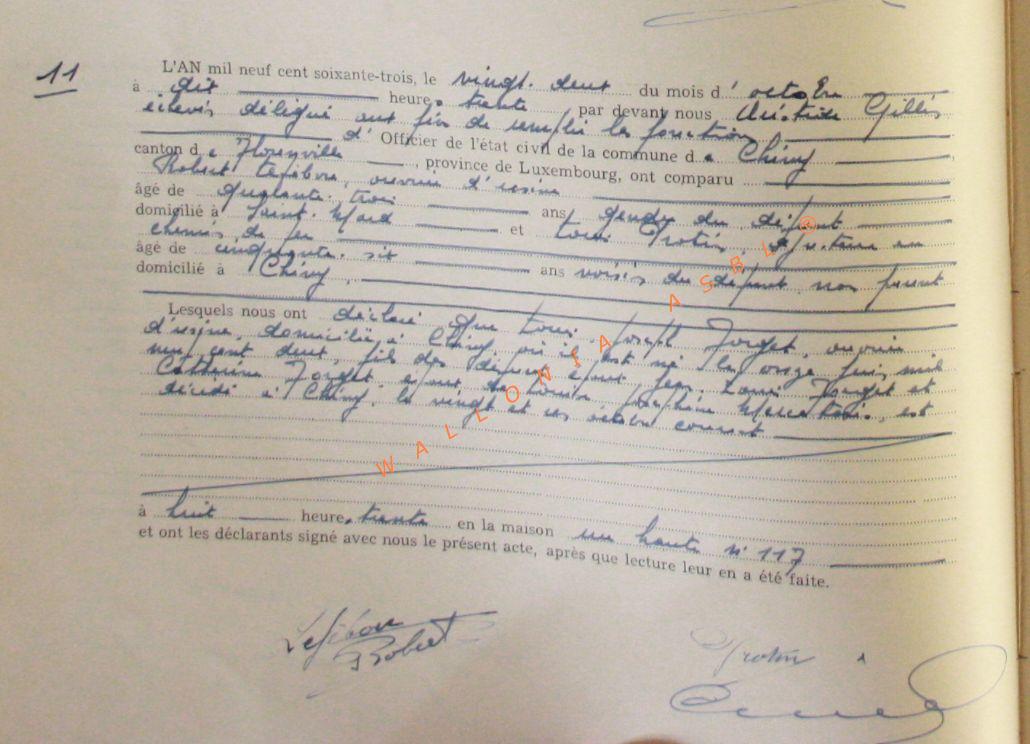 11
L'AN mil neuf cent soixante-trois, le vingt-deux du mois d' octobre
à dix heures trente par devant nous Aristide Gillis
échevin délégué aux fins de remplir les fonctions
d' Officier de l'état civil de la commune de Chiny
canton de Florenville, province de Luxembourg, ont comparu
Robert Lefèbvre, ouvrier d'usine
âgé de quarante-trois ans gendre du défunt
domicilié à Saint-Mard et Louis Protin,
chemin de fer
âgé de cinquante-six ans voisin du défunt, non parent
domicilié à Chiny,
Lesquels nous ont déclaré que Louis Joseph Forget, ouvrier
d'usine, domicilié à Chiny, où il est né le onze juin mil
neuf cent deux, fils des défunts époux Jean-Louis Forget et
Catherine Forget époux de Louise Joséphine, est
décédé à Chiny, le vingt et un octobre courant
à huit heures trente en la maison rue haute n° 117
et ont les déclarants signé avec nous le présent acte, après que lecture leur en a été faite.
Robert
Protin
WALLONIA ASBL ®